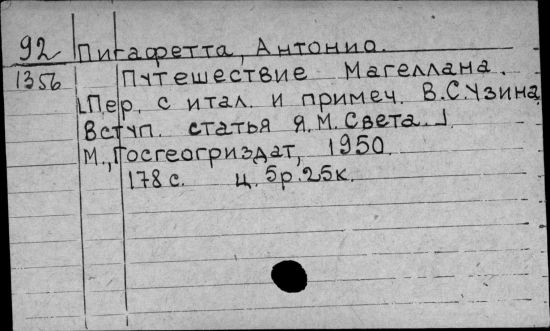 92 Пигафетта, Антонио.
1356 Путешествие Магеллана.
[Пер. с итал. и примеч. В.С.Узина.
Вступ. статья Я.М.Света.]
М., Госгеогриздат, 1950.
178 с. ц. 5р.25к.